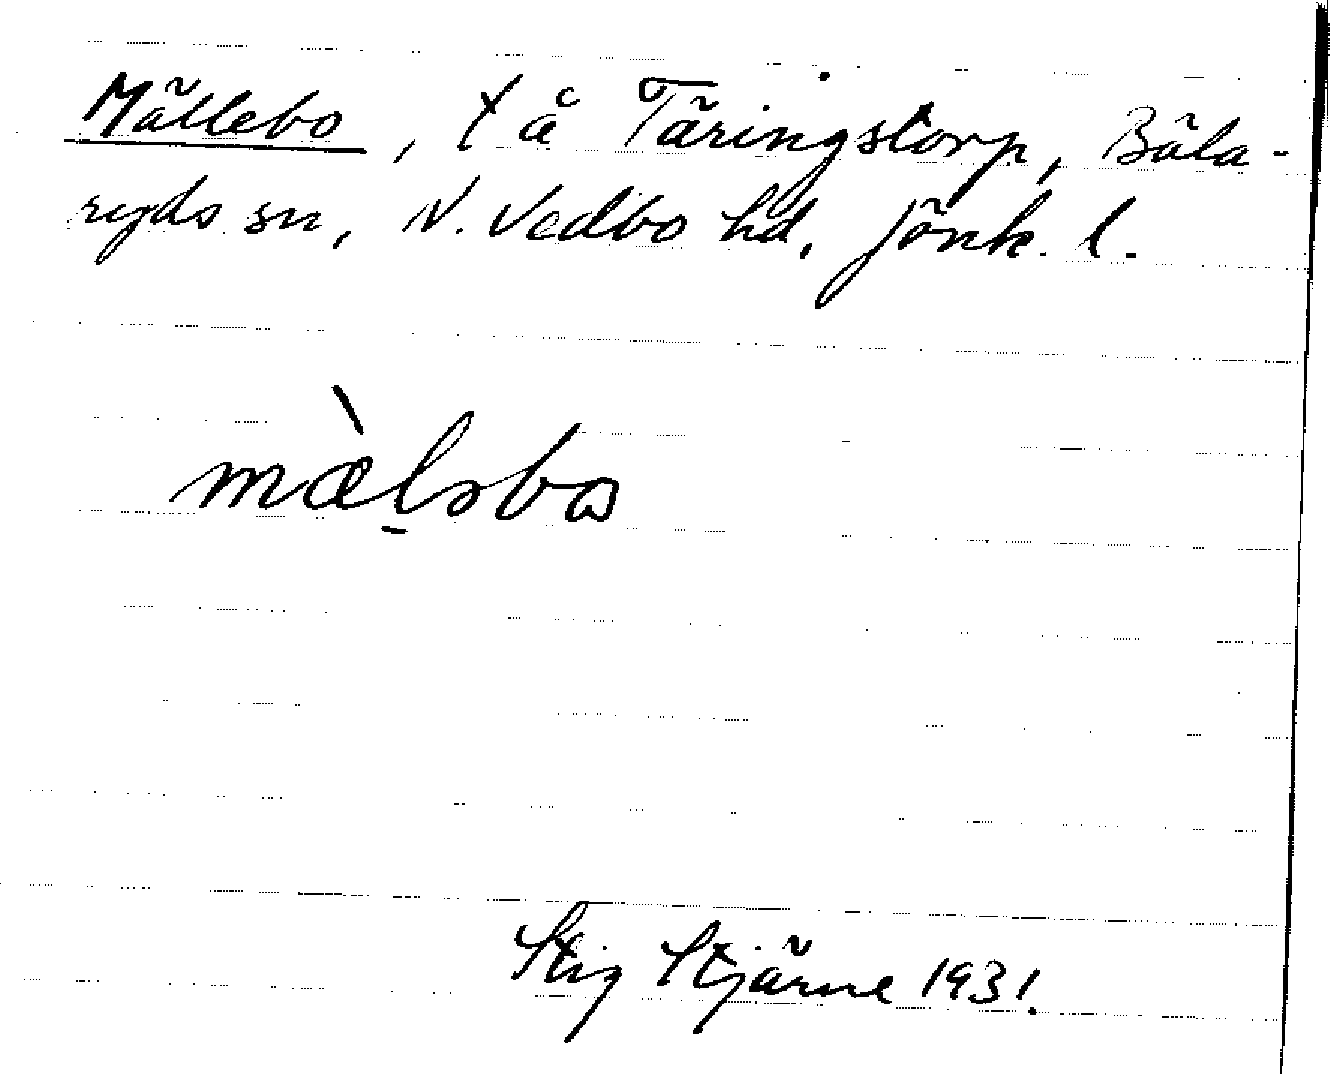 Mällebo, t å Täringstorp, Bäla-
ryds sn, N. Vedbo hd, Jönk. l.
mæ̀l̠əbo
Stig Stjärne 1931.